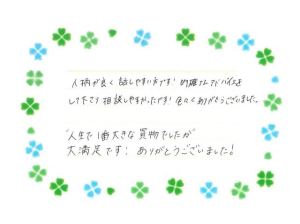 人柄が良く話しやすい方です！的確なアドバイスを
して下さり相談しやすかったです！色々とありがとうございました。
人生で1番大きな買物でしたが
大満足です！ありがとうございました！